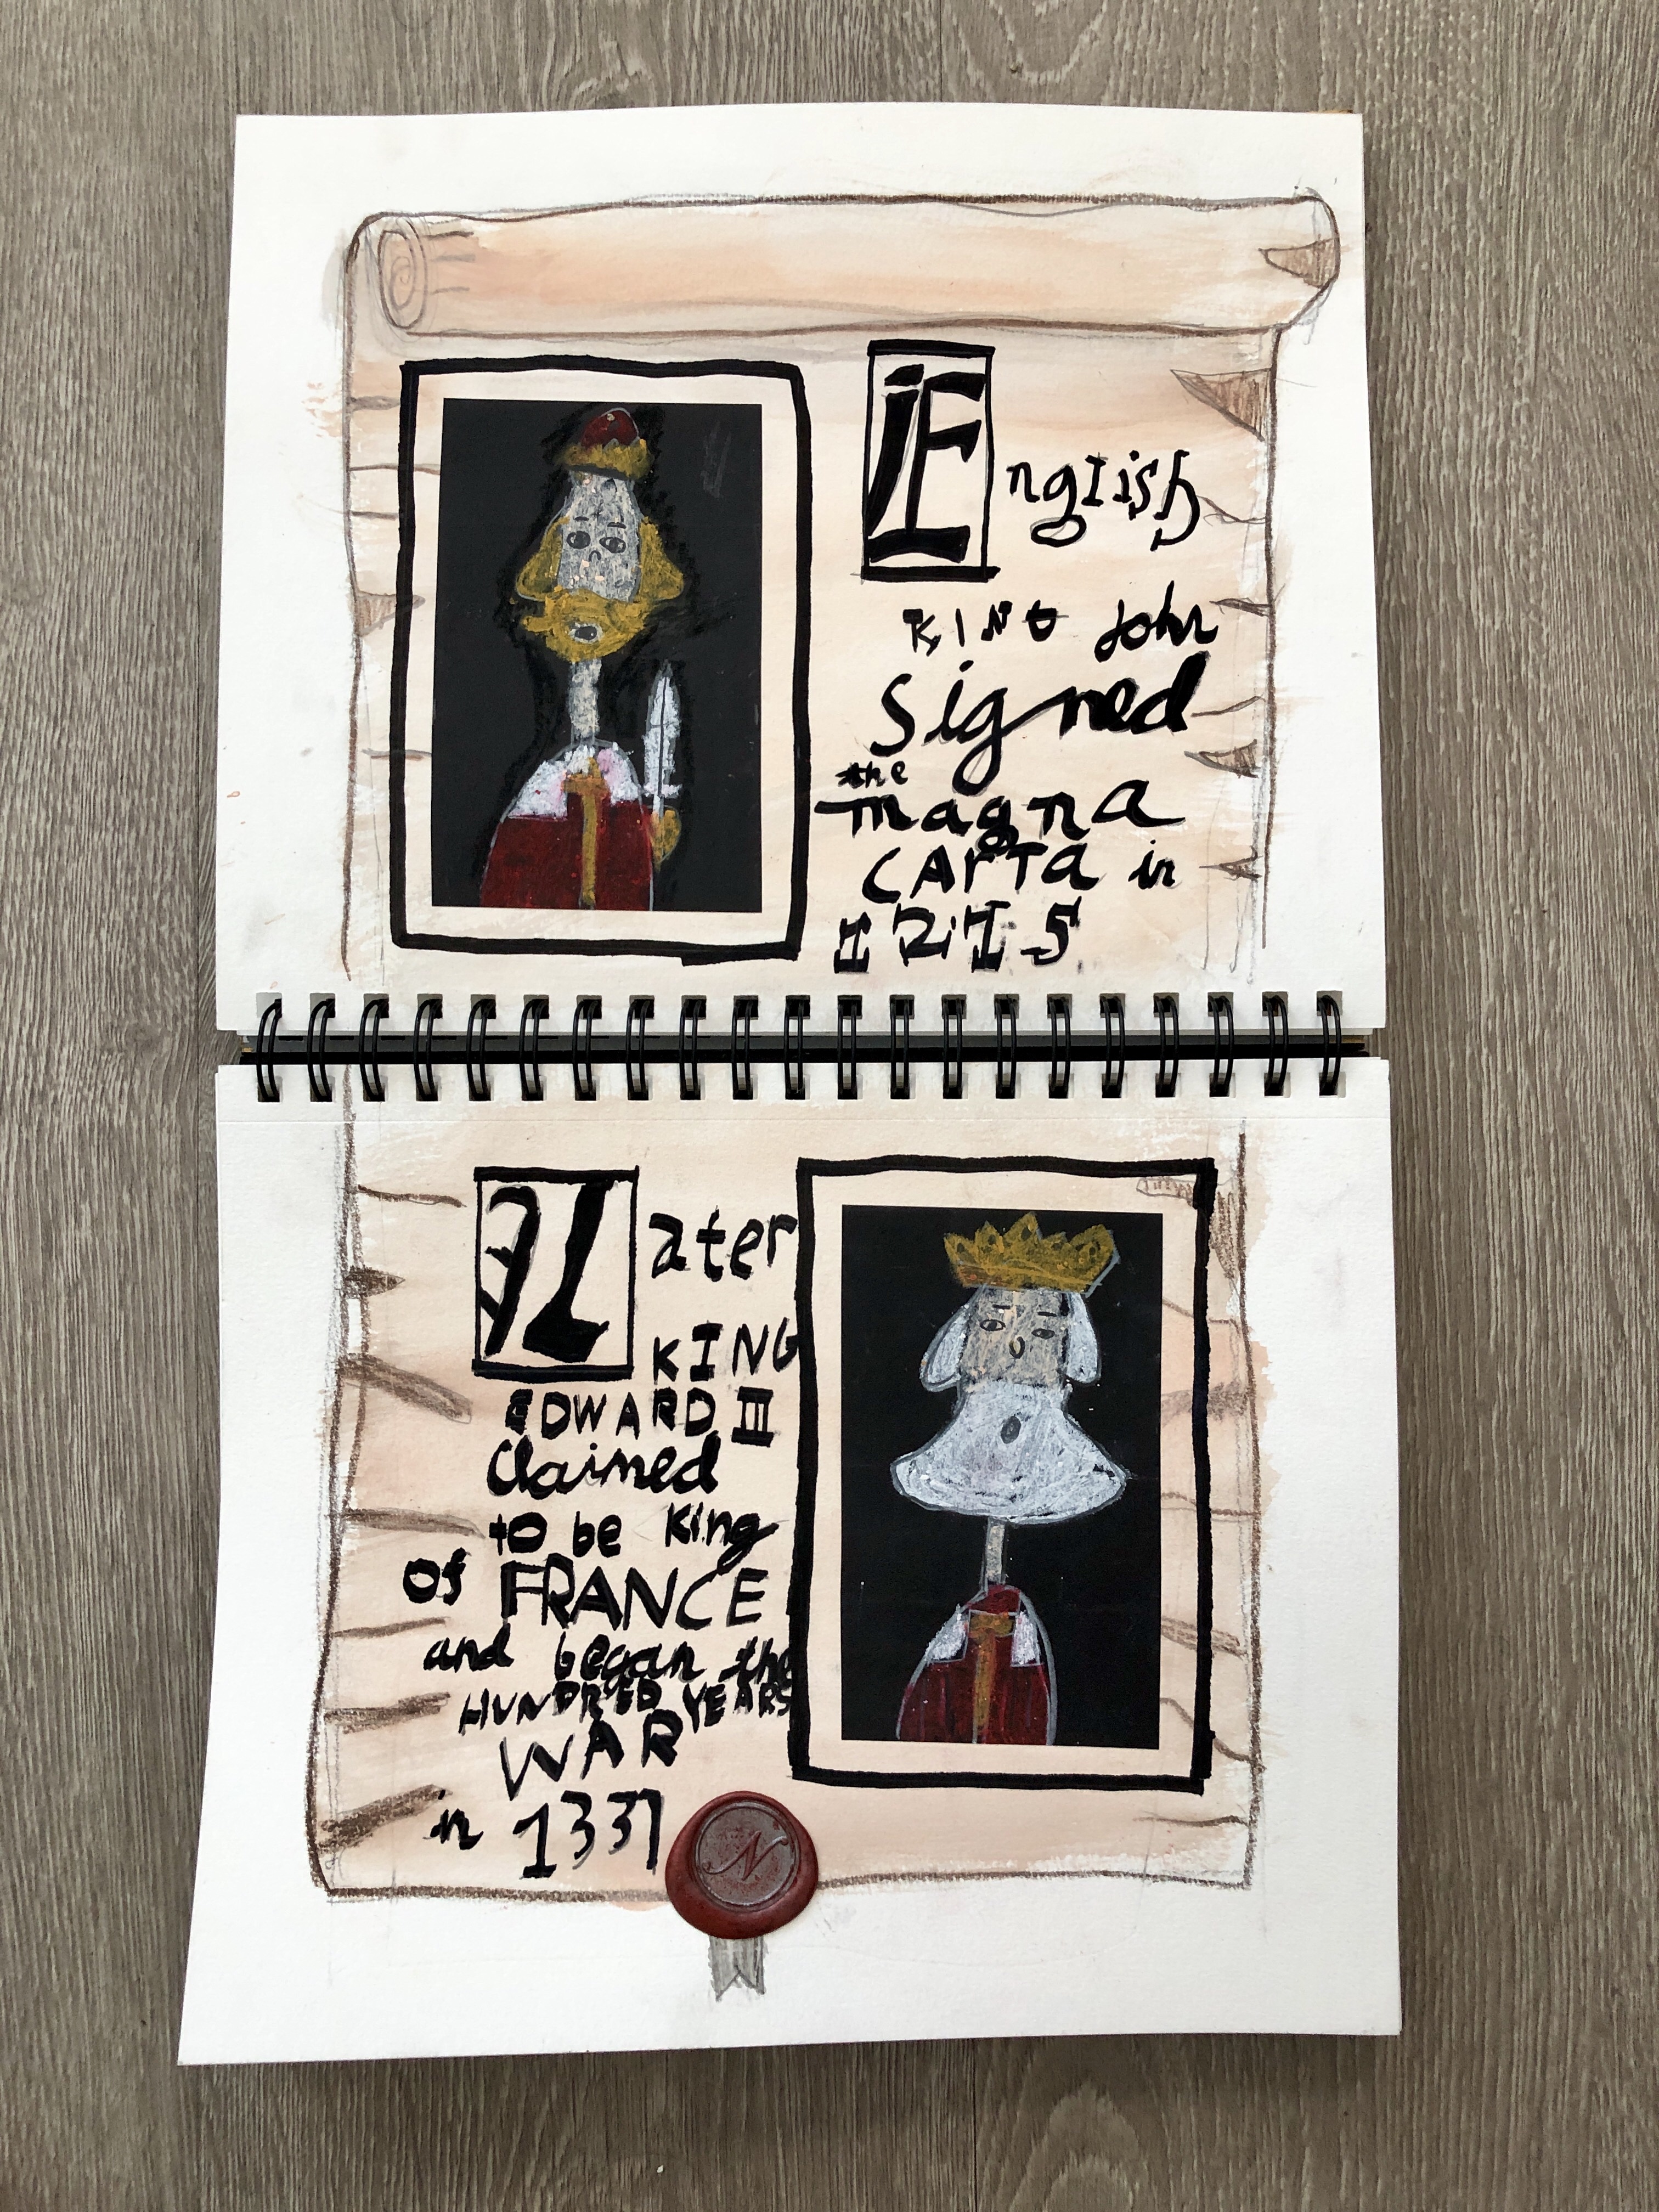 English
KING John
Signed
the
magna
CArTa in
1215
Later
KING
EDWARD III
Claimed
to be King
of FRANCE
and began the
HUNDRED YEARS
WAR
in 1337
N